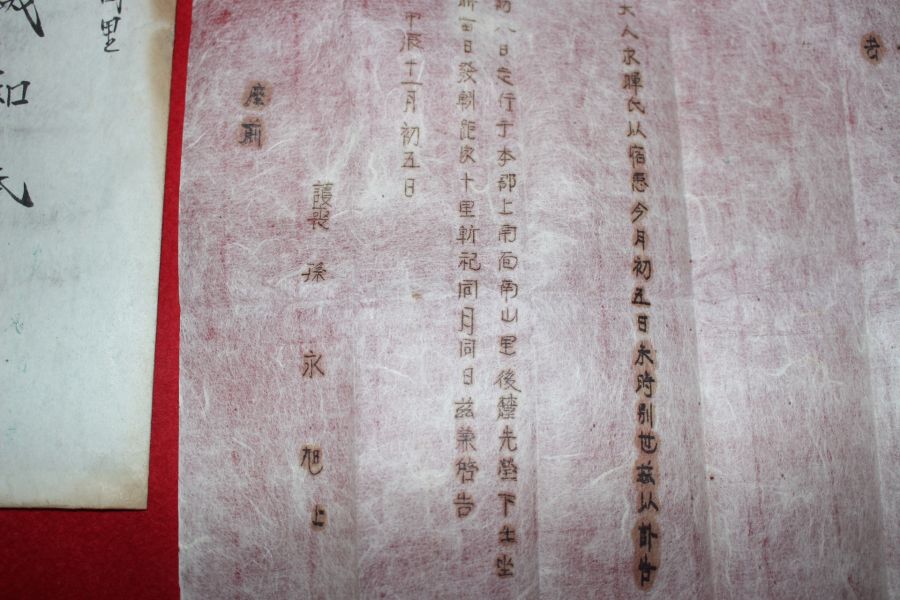 告
大人氏以宿患今月初五日未時別世玆以訃告
八日定行于本郡上南面南山里後麓先塋下坐
日發靷距十里斬祀同月同日玆兼啓告
甲辰十一月初五日
護喪 孫 永 旭 上
座前
里
和氏